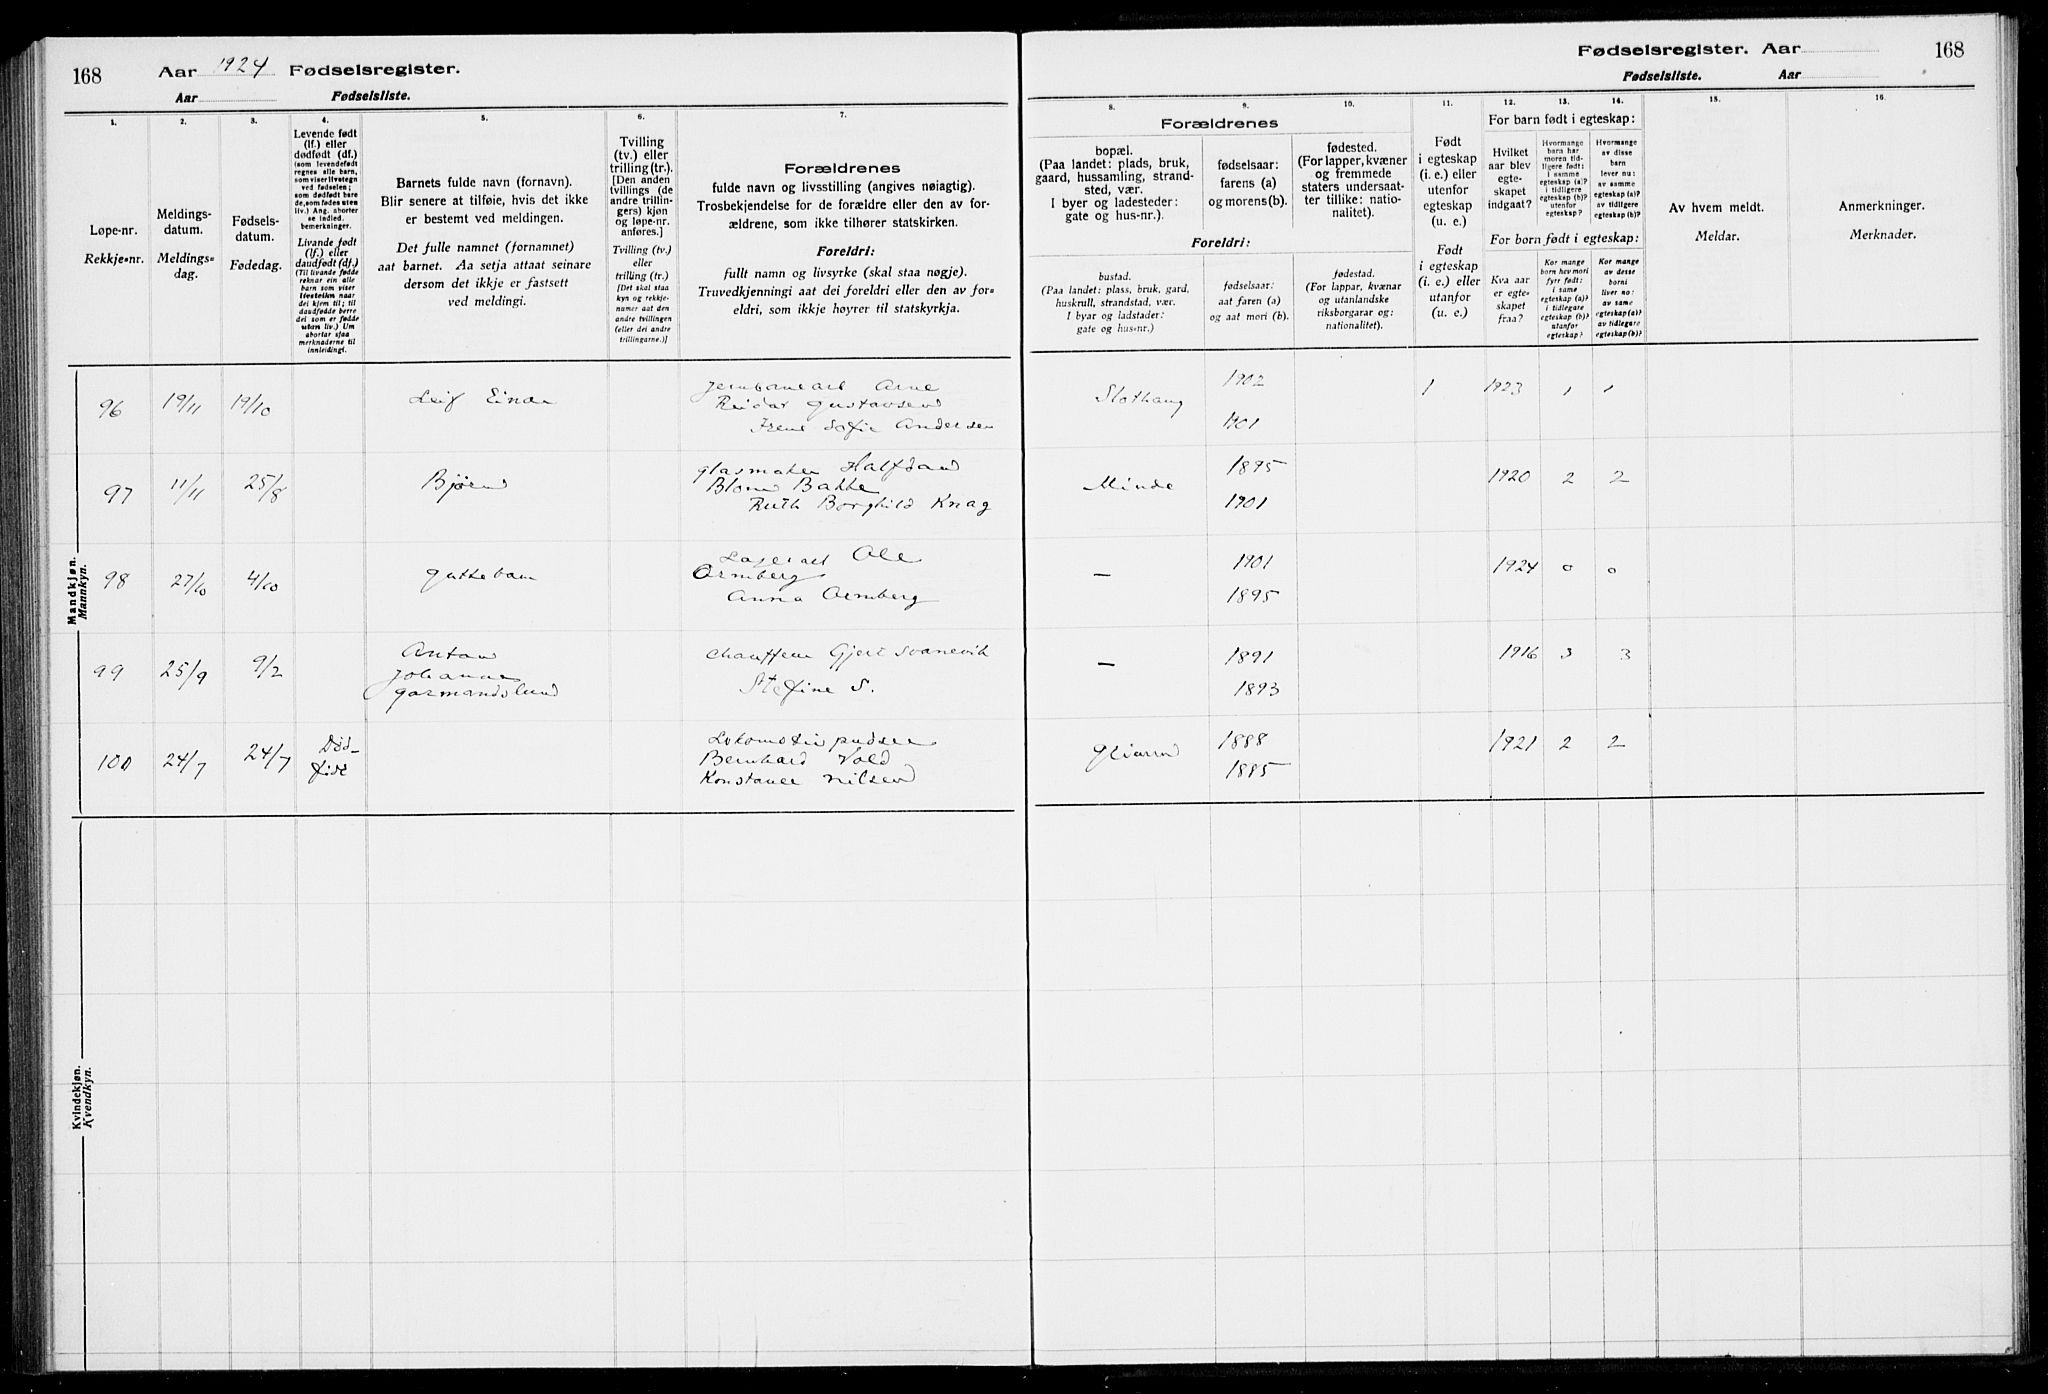 168
Aar 1924 Fødselsregister.
Aar Fødselsliste.
1.
2.
3.
4.
5.
6.
7.
Løpe-nr.
Rekkje-nr.
Meldings-
datum.
Meldings-
dag.
Fødsels-
datum.
Fødedag.
Levende født
(lf.) eller
dødfødt (df.)
(som levendefødt
regnes alle barn,
som viser livstegn
ved fødselen;
som dødfødt bare
de, som fødes uten
liv.) Ang. aborter
se indled.
bemerkninger.
Livande født
(lf.) eller
daudfødt (df.)
(Til livande fødde
reknar ein alle
barn som viser
livsteikn naar
dei kjem til; til
daudfødde berre
dei som er fødde
utan liv.) Um
abortar sjaa
merknaderne til
innleidingi.
Barnets fulde navn (fornavn).
Blir senere at tilføie, hvis det ikke
er bestemt ved meldingen.
Det fulle namnet (fornamnet)
aat barnet. Aa setja attaat seinare
dersom det ikkje er fastsett
ved meldingi.
Tvilling
(tv.) eller
trilling (tr.).
[Den anden
tvillings (de
andre trillin-
gers) kjøn
og løpe-nr.
anføres.]
Tvilling (tv.)
eller
trilling (tr.)
[Det skal staa
kyn og rekkje-
numer aat den
andre tvillingen
(eller dei andre
trillingarne.)]
Forældrenes
fulde navn og livsstilling (angives nøiagtig).
Trosbekjendelse for de forældre eller den av for-
ældrene, som ikke tilhører statskirken.
Foreldri:
fullt namn og livsyrke (skal staa nøgje).
Truvedkjenningi aat dei foreldri eller den av for-
eldri, som ikkje høyrer til statskyrkja.
Mandkjøn.
Mannkyn.
96
19/11
19/10
Leif Einar
Jernbanearb Arne
Reidar Gustavsen
Irene Sofie Andersen
97
11/11
25/8
Bjørn
glasmaker Halfdan
Blom Bakke
Ruth Borghild Knag
98
27/10
4/10
guttebarn
Lagerarb Ole
Ormberg
Anna Ormberg
99
25/9
9/2
Anton
Johannes
chauffeur Gjert Svanevik
Stefine S.
100
24/7
24/7
Død-
født
Lokomotivpudser
Bernhard Vold
Konstance Nilsen
Kvindekjøn.
Kvendkyn.
Fødselsregister. Aar
168
Fødselsliste. Aar
8.
9.
10.
11.
12.
13.
14.
15.
16.
Forældrenes
bopæl.
(Paa landet: plads, bruk,
gaard, hussamling, strand-
sted, vær.
I byer og ladesteder:
gate og hus-nr.).
fødselsaar:
farens (a)
og morens (b).
fødested.
(For lapper, kvæner
og fremmede
staters undersaat-
ter tillike: natio-
nalitet).
Foreldri:
bustad.
(Paa landet: plass, bruk, gard,
huskrull, strandstad, vær.
I byar og ladstader:
gate og hus-nr.)
fødselsaar:
aat faren (a)
og aat mori (b).
fødestad.
(For lappar, kvænar
og utanlandske
riksborgarar og:
nationalitet).
Født
i egteskap
(i. e.) eller
utenfor
egteskap
(u. e.)
Født
i egteskap
(i. e.) eller
utanfor
(u. e.)
For barn født i egteskap:
Hvilket
aar blev
egte-
skapet
indgaat?
Hvormange
barn har
moren tid-
ligere født:
i samme
egteskap (a)?
i tidligere
egteskap (b)?
utenfor
egteskap?
Hvormange
av disse
barn
lever nu:
av samme
egteskap (a)?
av tidligere
egteskap (b)?
For born født i egteskap:
Kva aar
er egte-
skapet
fraa?
Kor mange
born hev mori
fyrr født:
i same
egteskap (a)?
i tidlegare
egteskap (b)?
utanfor
egteskap?
Kor mange
av desse
borni
liver no:
av same
egteskap (a)?
av tidlegare
egteskap (b)?
Av hvem meldt.
Meldar.
Anmerkninger.
Merknader.
Slothaug
1902
1901
1
1923
1
1
Minde
1895
1901
1920
2
2
—
1901
1895
1924
0
0
—
1891
1893
1916
3
3
1888
1885
1921
2
2